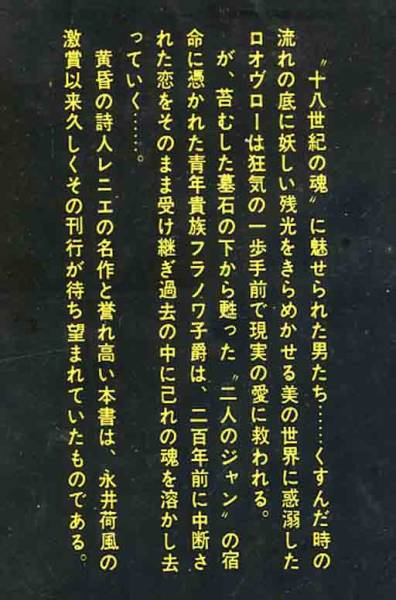 〝十八世紀の魂〟に魅せられた男たち……くすんだ時の
流れの底に妖しい残光をきらめかせる美の世界に惑溺した
ロオヴローは狂気の一歩手前で現実の愛に救われる。
が、苔むした墓石の下から甦った〝二人のジャン〟の宿
命に憑かれた青年貴族フラノワ子爵は、二百年前に中断さ
れた恋をそのまま受け継ぎ過去の中に己れの魂を溶かし去
っていく……。
黄昏の詩人レニエの名作と誉れ高い本書は、永井荷風の
激賞以来久しくその刊行が待ち望まれていたものである。